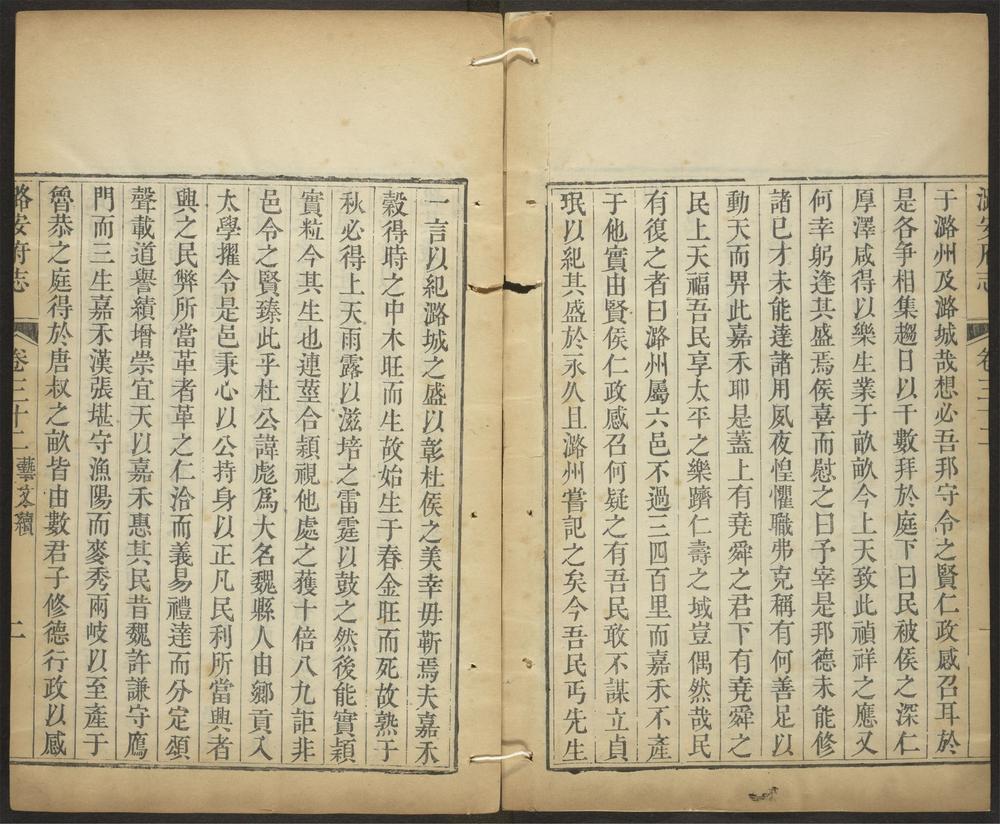 潞安府志
卷三十二
于潞州及潞城哉想必吾邦守令之賢仁政感召耳於
是各爭相集趨日以千數拜於庭下曰民被侯之深仁
厚澤咸得以樂生業于畝畝今上天致此禎祥之應又
何幸躬逢其盛焉侯喜而慰之曰予宰是邦德未能修
諸已才未能達諸用夙夜惶懼職弗克稱有何善足以
動天而畀此嘉禾耶是蓋上有堯舜之君下有堯舜之
民上天福吾民享太平之樂躋仁壽之域豈偶然哉民
有復之者曰潞州屬六邑不過三四百里而嘉禾不產
于他實由賢侯仁政感召何疑之有吾民敢不謀立貞
珉以紀其盛於永久且潞州嘗記之矣今吾民丐先生
一言以紀潞城之盛以彰杜侯之美幸毋靳焉夫嘉禾
穀得時之中木旺而生故始生于春金旺而死故熟于
秋必得上天雨露以滋培之雷霆以鼓之然後能實穎
實粒今其生也連莖合穎視他處之獲十倍八九詎非
邑令之賢臻此乎杜公諱彪爲大名魏縣人由鄉貢入
太學擢令是邑秉心以公持身以正凡民利所當興者
興之民弊所當革者革之仁洽而義易禮達而分定頌
聲載道譽績增崇宜天以嘉禾惠其民昔魏許謙守鴈
門而三生嘉禾漢張堪守漁陽而麥秀兩岐以至產于
魯恭之庭得於唐叔之畝皆由數君子修德行政以感
潞安府志
卷三十二 藝文續
二